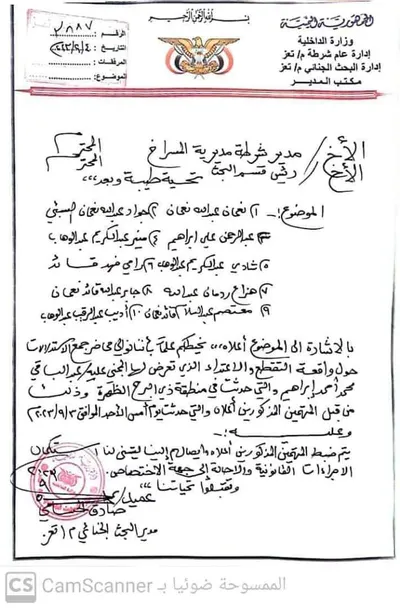 بسم الله الرحمن الرحيم
الجمهورية اليمنية
وزارة الداخلية
إدارة عام شرطة م/ تعز
إدارة البحث الجنائي م/ تعز
مكتب المدير
الرقم: ٢٨٨٧
التاريخ: ٢٠٢٣/٩/٤
المرفقات:
الموضوع:
الأخ/ مدير شرطة مديرية المسراخ المحترم
الأخ/ رئيس قسم البحث المحترم
تحية طيبة وبعد،،،
الموضوع:- ١) نعمان عبدالله نعمان ٢) جواد عبدالله نعمان
٣) عبدالرحمن علي ابراهيم ٤) منير عبدالكريم عبدالوهاب
٥) شادي عبدالكريم عبدالوهاب ٦) رامي فهد قائد
٧) هزاع ردمان عبدالله ٨) جابر عبدالله قائد نعمان
٩) معتصم عبدالسلام قائد نعمان ١٠) أديب عبدالرقيب عبدالوهاب
بالإشارة إلى الموضوع أعلاه،، نحيطكم علماً بأننا نوالي محاضر جمع الاستدلالات
حول واقعة التقطع والاعتداء الذي تعرض لها المجني عليه/ عبدالباقي
محمد أحمد إبراهيم والتي حدثت في منطقة ذي البرح الظهرة وذلك
من قبل المتهمين المذكورين أعلاه والتي حدثت يوم أمس الأحد الموافق ٢٠٢٣/٩/٣
وعليه:-
يتم ضبط المتهمين المذكورين أعلاه وإيصالهم إلينا ليتسنى لنا استكمال
الإجراءات القانونية والإحالة إلى جهة الاختصاص.
وتقبلوا تحياتنا،،،
عميد/
صادق
مدير البحث الجنائي م/ تعز
الممسوحة ضوئيا بـ CamScanner
CS